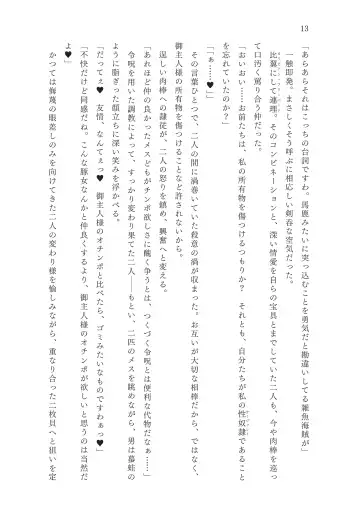 13
「あらあらそれはこっちの台詞ですわ。馬鹿みたいに突っ込むことを勇気だと勘違いしてる雑魚海賊が」
一触即発。まさしくそう呼ぶに相応しい剣呑な空気だった。
比翼にして連理。そのコンビネーションと、深い情愛を自らの宝具とまでしていた二人も、今や肉棒を巡っ
て口汚く罵り合う仲だった。
「おいおい……お前たちは、私の所有物を傷つけるつもりか？　それとも、自分たちが私の性奴隷であること
を忘れていたのか？」
「「ぁ……♥」」
その言葉ひとつで、二人の間に渦巻いていた殺意の渦が収まった。お互いが大切な相棒だから、ではなく、
御主人様の所有物を傷つけることなど許されないから。
逞しい肉棒への隷従が、二人の怒りを鎮め、興奮へと変える。
「あれほど仲の良かったメスどもがチンポ欲しさに醜く争うとは、つくづく令呪とは便利な代物だなぁ……」
令呪を用いた調教によって、すっかり変わり果てた二人――もとい、二匹のメスを眺めながら、男は蟇蛙の
ように脂ぎった顔立ちに深い笑みを浮かべる。
「だってぇ♥　友情、なんてぇっ♥　御主人様のオチンポと比べたら、ゴミみたいなものですわぁっ♥」
「不快だけど同感だね。こんな豚女なんかと仲良くするより、御主人様のオチンポが欲しいと思うのは当然だ
よ♥」
かつては侮蔑の眼差しのみを向けてきた二人の変わり様を愉しみながら、重なり合った二枚貝へと狙いを定